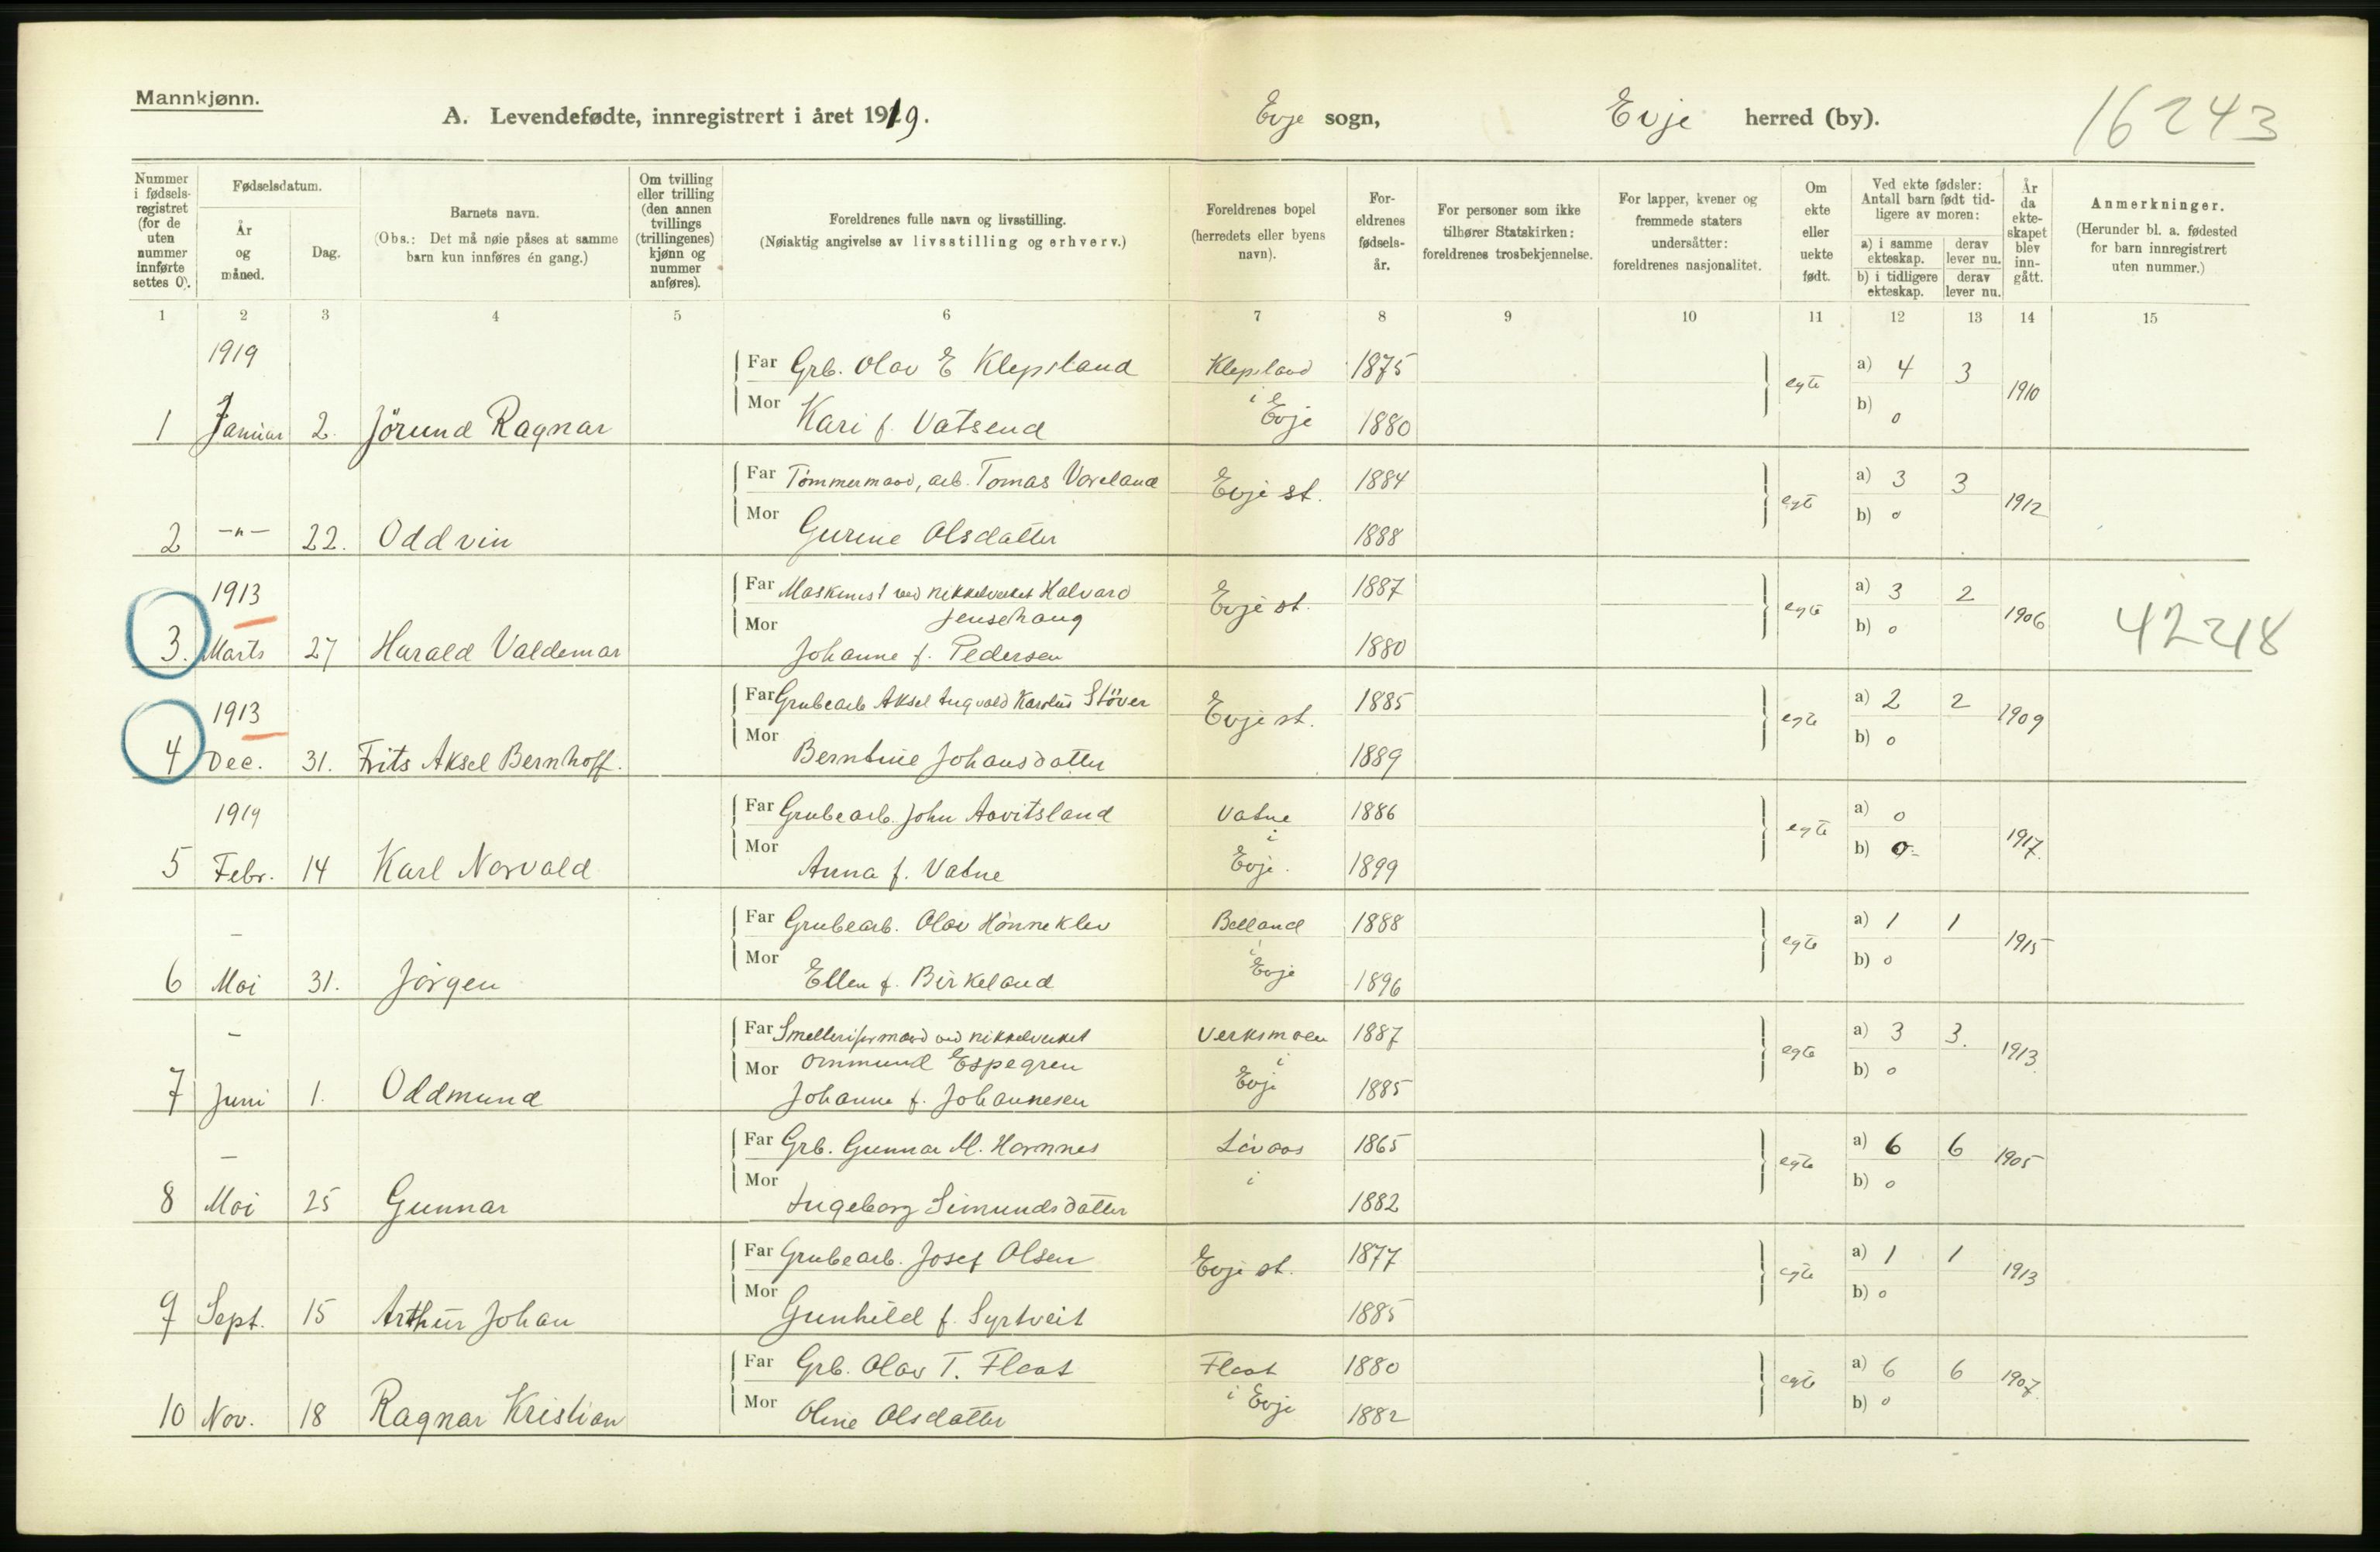 Mannkjønn.
A. Levendefødte, innregistrert i året 1919. Evje sogn, Evje herred (by). 16243
Nummer i fødselsregistret (for de uten nummer innførte settes 0).
Fødselsdatum.
År og måned.
Dag.
Barnets navn.
(Obs.: Det må nøie påses at samme barn kun innføres én gang.)
Om tvilling eller trilling (den annen tvillings (trillingenes) kjønn og nummer anføres).
Foreldrenes fulle navn og livsstilling.
(Nøiaktig angivelse av livsstilling og erhverv.)
Foreldrenes bopel (herredets eller byens navn).
Foreldrenes fødselsår.
For personer som ikke tilhører Statskirken: foreldrenes trosbekjennelse.
For lapper, kvener og fremmede staters undersåtter: foreldrenes nasjonalitet.
Om ekte eller uekte født.
Ved ekte fødsler: Antall barn født tidligere av moren:
a) i samme ekteskap. derav lever nu.
b) i tidligere ekteskap. derav lever nu.
År da ekteskapet blev inngått.
Anmerkninger.
(Herunder bl. a. fødested for barn innregistrert uten nummer.)
1 2 3 4 5 6 7 8 9 10 11 12 13 14 15
1919 Far Grb. Olav E Klepsland Klepsland 1875 egte a) 4 3 1910
1 Januar 2. Jörund Ragnar Mor Kari f. Vatsend i Evje 1880 b) 0
Far Tömmermand, arb. Tomas Vareland Evje st. 1884 egte a) 3 3 1912
2 -"- 22. Oddvin Mor Gurine Olsdatter 1888 b) 0
1913 Far Maskinist ved nikkelverket Halvard Jensehaug Evje st. 1887 egte a) 3 2 1906 42218
3. Marts 27 Harald Valdemar Mor Johanne f. Pedersen 1880 b) 0
1913 Far Grubearb Aksel Ingvald Karolius Stöver Evje st. 1885 egte a) 2 2 1909
4 Dec. 31. Frits Aksel Bernhoff. Mor Berntine Johansdatter 1889 b) 0
1919 Far Grubearb. John Aavitsland Vatne 1886 egte a) 0 1917.
5 Febr. 14 Karl Norvald Mor Anna f. Vatne i Evje. 1899 b) 0
- Far Grubearb. Olav Hönneklev Belland 1888 egte a) 1 1 1915
6 Mai 31. Jörgen Mor Ellen f. Birkeland i Evje 1896 b) 0
- Far Smelteriformand ved nikkelverket Ommund Espegren Verksmoen 1887 egte a) 3 3. 1913
7 Juni 1. Oddmund Mor Johanne f. Johannesen i Evje 1885 b) 0
- Far Grb. Gunnar M. Hornnes Livaas 1865 egte a) 6 6 1905
8 Mai 25 Gunnar Mor Ingeborg Simundsdatter i 1882 b) 0
Far Grubearb. Josef Olsen Evje st. 1877 egte a) 1 1 1913
9 Sept. 15 Arthur Johan Mor Gunhild f. Syrtveit 1885 b) 0
Far Grb. Olav T. Flaat Flaat 1880 egte a) 6 6 1907.
10 Nov. 18 Ragnar Kristian Mor Oline Olsdatter i Evje 1882 b) 0